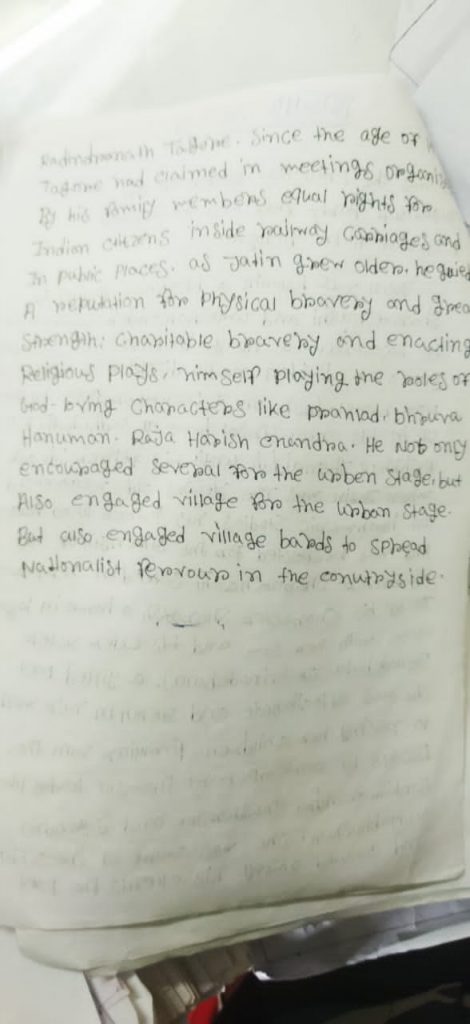 Rabindranath Tagore. Since the age of
Tagore had claimed in meetings organis
By his family members equal rights for
Indian citizens inside railway carriages and
In public places. as Jatin grew older, he gained
A reputation for physical bravery and great
Strength: Charitable bravery and enacting
Religious plays, himself playing the roles of
God-loving Characters like Prahlad. bhruva
Hanuman. Raja Harish Chandra. He Not only
encouraged several for the urben stage, but
Also engaged village for the urban stage.
But also engaged village bards to spread
Nationalist, Fervour in the conutryside.